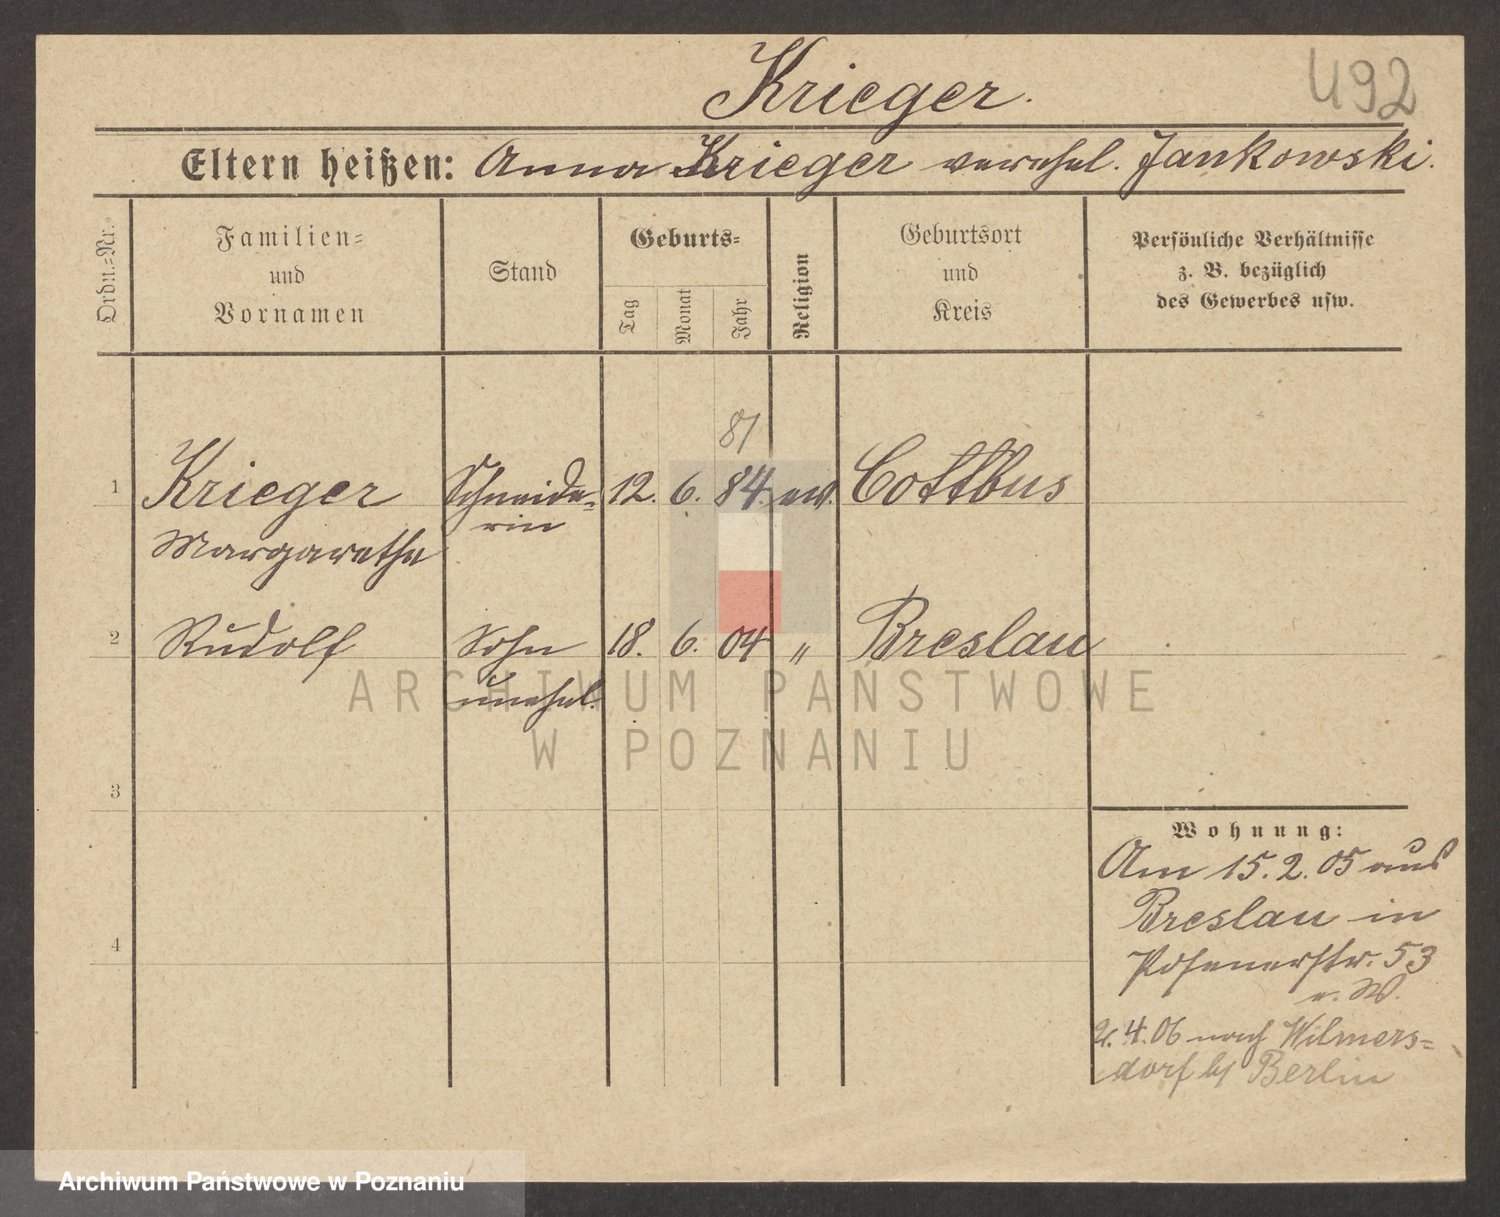 492
Krieger.
Eltern heißen: Anna Krieger verehel. Jankowski.
Ordn.-Nr.
Familien-
und
Vornamen
Stand
Geburts-
Tag
Monat
Jahr
Religion
Geburtsort
und
Kreis
Persönliche Verhältnisse
z. B. bezüglich
des Gewerbes usw.
81
1 Krieger Schneide- 12. 6. 84. ev. Cottbus
Margarethe rin
2 Rudolf Sohn 18. 6. 04 " Breslau
unehel.
3
4
Wohnung:
Am 15.2.05 aus
Breslau in
Posenerstr. 53
b. W.
2.4.06 nach Wilmers-
dorf b/ Berlin
ARCHIWUM PAŃSTWOWE
W POZNANIU
Archiwum Państwowe w Poznaniu